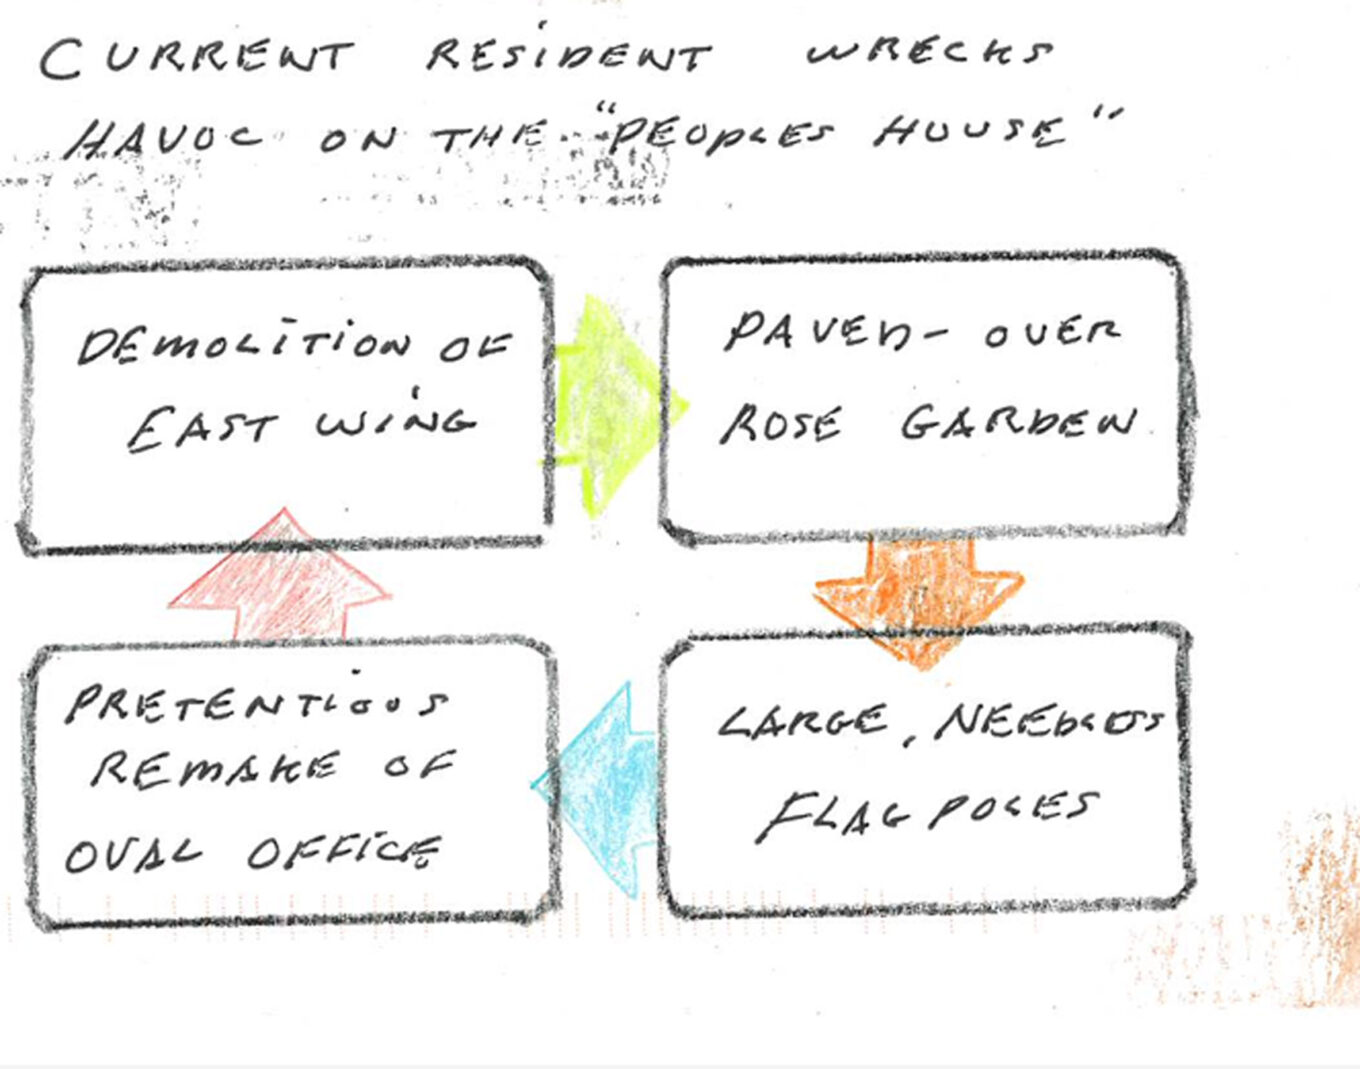 CURRENT RESIDENT WRECKS
HAVOC ON THE "PEOPLES HOUSE"
DEMOLITION OF
EAST WING
PAVED-OVER
ROSE GARDEN
PRETENTIOUS
REMAKE OF
OVAL OFFICE
LARGE, NEEDLESS
FLAG POLES